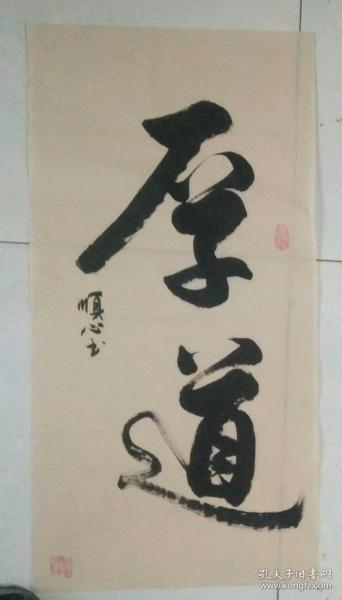 厚道
順心书
孔夫子旧书网
www.kongfz.com